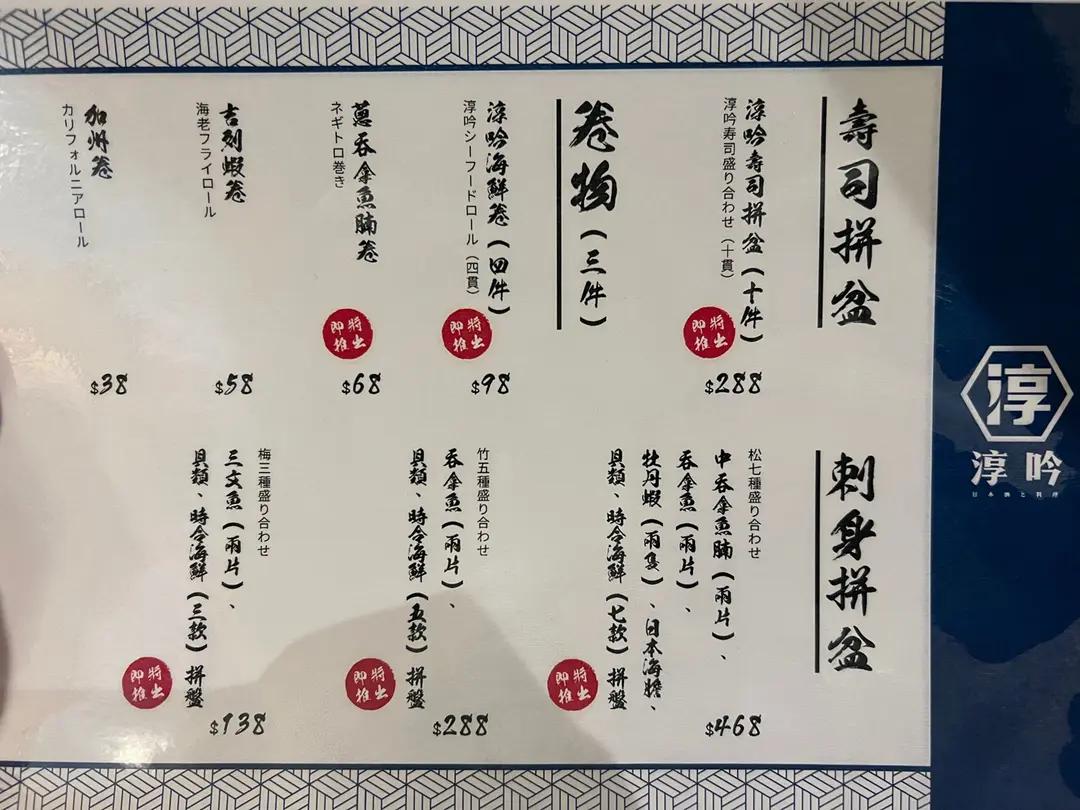 壽司拼盆
淳吟壽司拼盆(十件)
淳吟寿司盛り合わせ(十貫)
將出
即推
$288
卷物(三件)
淳吟海鮮卷(四件)
淳吟シーフードロール(四貫)
將出
即推
$98
蔥吞拿魚腩卷
ネギトロ巻き
將出
即推
$68
吉列蝦卷
海老フライロール
$58
加州卷
カリフォルニアロール
$38
刺身拼盆
松七種盛り合わせ
中吞拿魚腩(兩片)、
吞拿魚(兩片)、
牡丹蝦(兩隻)、日本海膽、
貝類、時令海鮮(七款)拼盤
將出
即推
$468
竹五種盛り合わせ
吞拿魚(兩片)、
貝類、時令海鮮(五款)拼盤
將出
即推
$288
梅三種盛り合わせ
三文魚(兩片)、
貝類、時令海鮮(三款)拼盤
將出
即推
$138
淳
淳吟
日本酒と料理